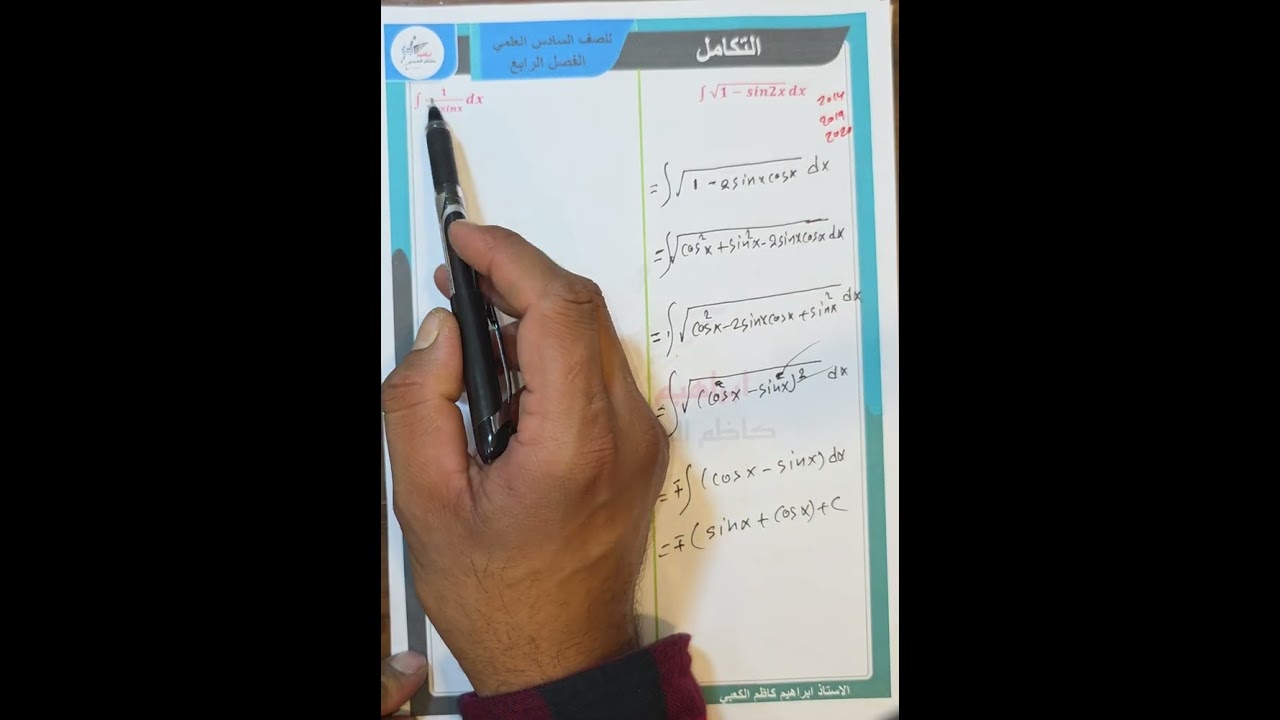 التكامل
للصف السادس العلمي
الفصل الرابع
∫ √1 − sin2x dx
2014
2019
2020
= ∫ √1 - 2sinxcosx dx
= ∫ √cos²x + sin²x - 2sinxcosx dx
= ∫ √cos²x - 2sinxcosx + sin²x dx
= ∫ √(cosx - sinx)² dx
= ∓ ∫ (cosx - sinx) dx
= ∓ (sinx + cosx) + C
∫ 1 sinx dx
ابراهيم
كاظم
الاستاذ ابراهيم كاظم الكعبي